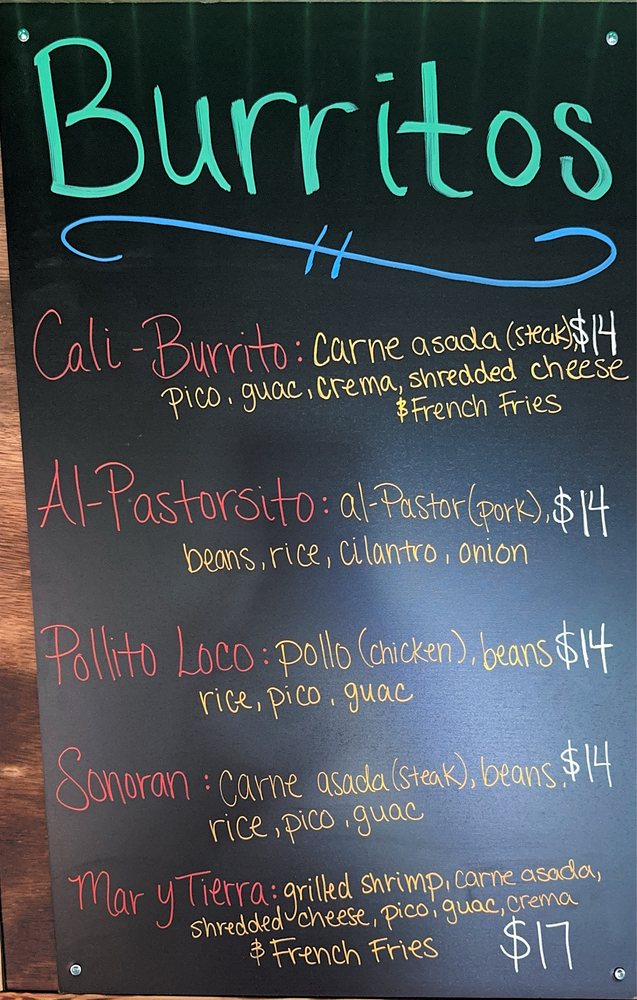 Burritos
Cali-Burrito: Carne asada (steak), $14
pico, guac, crema, shredded cheese
& French Fries
Al-Pastorsito: al-Pastor (pork), $14
beans, rice, cilantro, onion
Pollito Loco: pollo (chicken), beans $14
rice, pico, guac
Sonoran: carne asada (steak), beans, $14
rice, pico, guac
Mar y Tierra: grilled shrimp, carne asada,
shredded cheese, pico, guac, crema
& French Fries $17